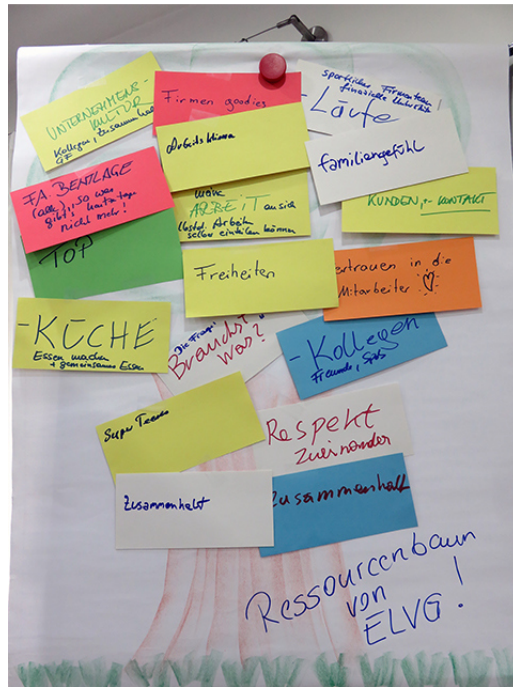 UNTERNEHMENS-
KULTUR
Kollegen, Zusammenhalt
GF
Firmen goodies
sportliches Firmenteam
finanzielle
- Läufe
Arbeitsklima
familiengefühl
FA. BENTLAGE
(alle), so was
gibt's heutzutage
nicht mehr!
ARBEIT an sich
selbst. Arbeiten
selber einteilen können
KUNDEN, - KONTAKT
TOP
Freiheiten
ertrauen in die
Mitarbeiter
- KÜCHE
Essen machen
+ gemeinsames Essen
Die Frage:
Brauchst
Was?
- Kollegen
Freunde, Spaß
Super Team
Respekt
zueinander
Zusammenhalt
Zusammenhalt
Ressourcenbaum
von
ELVG!